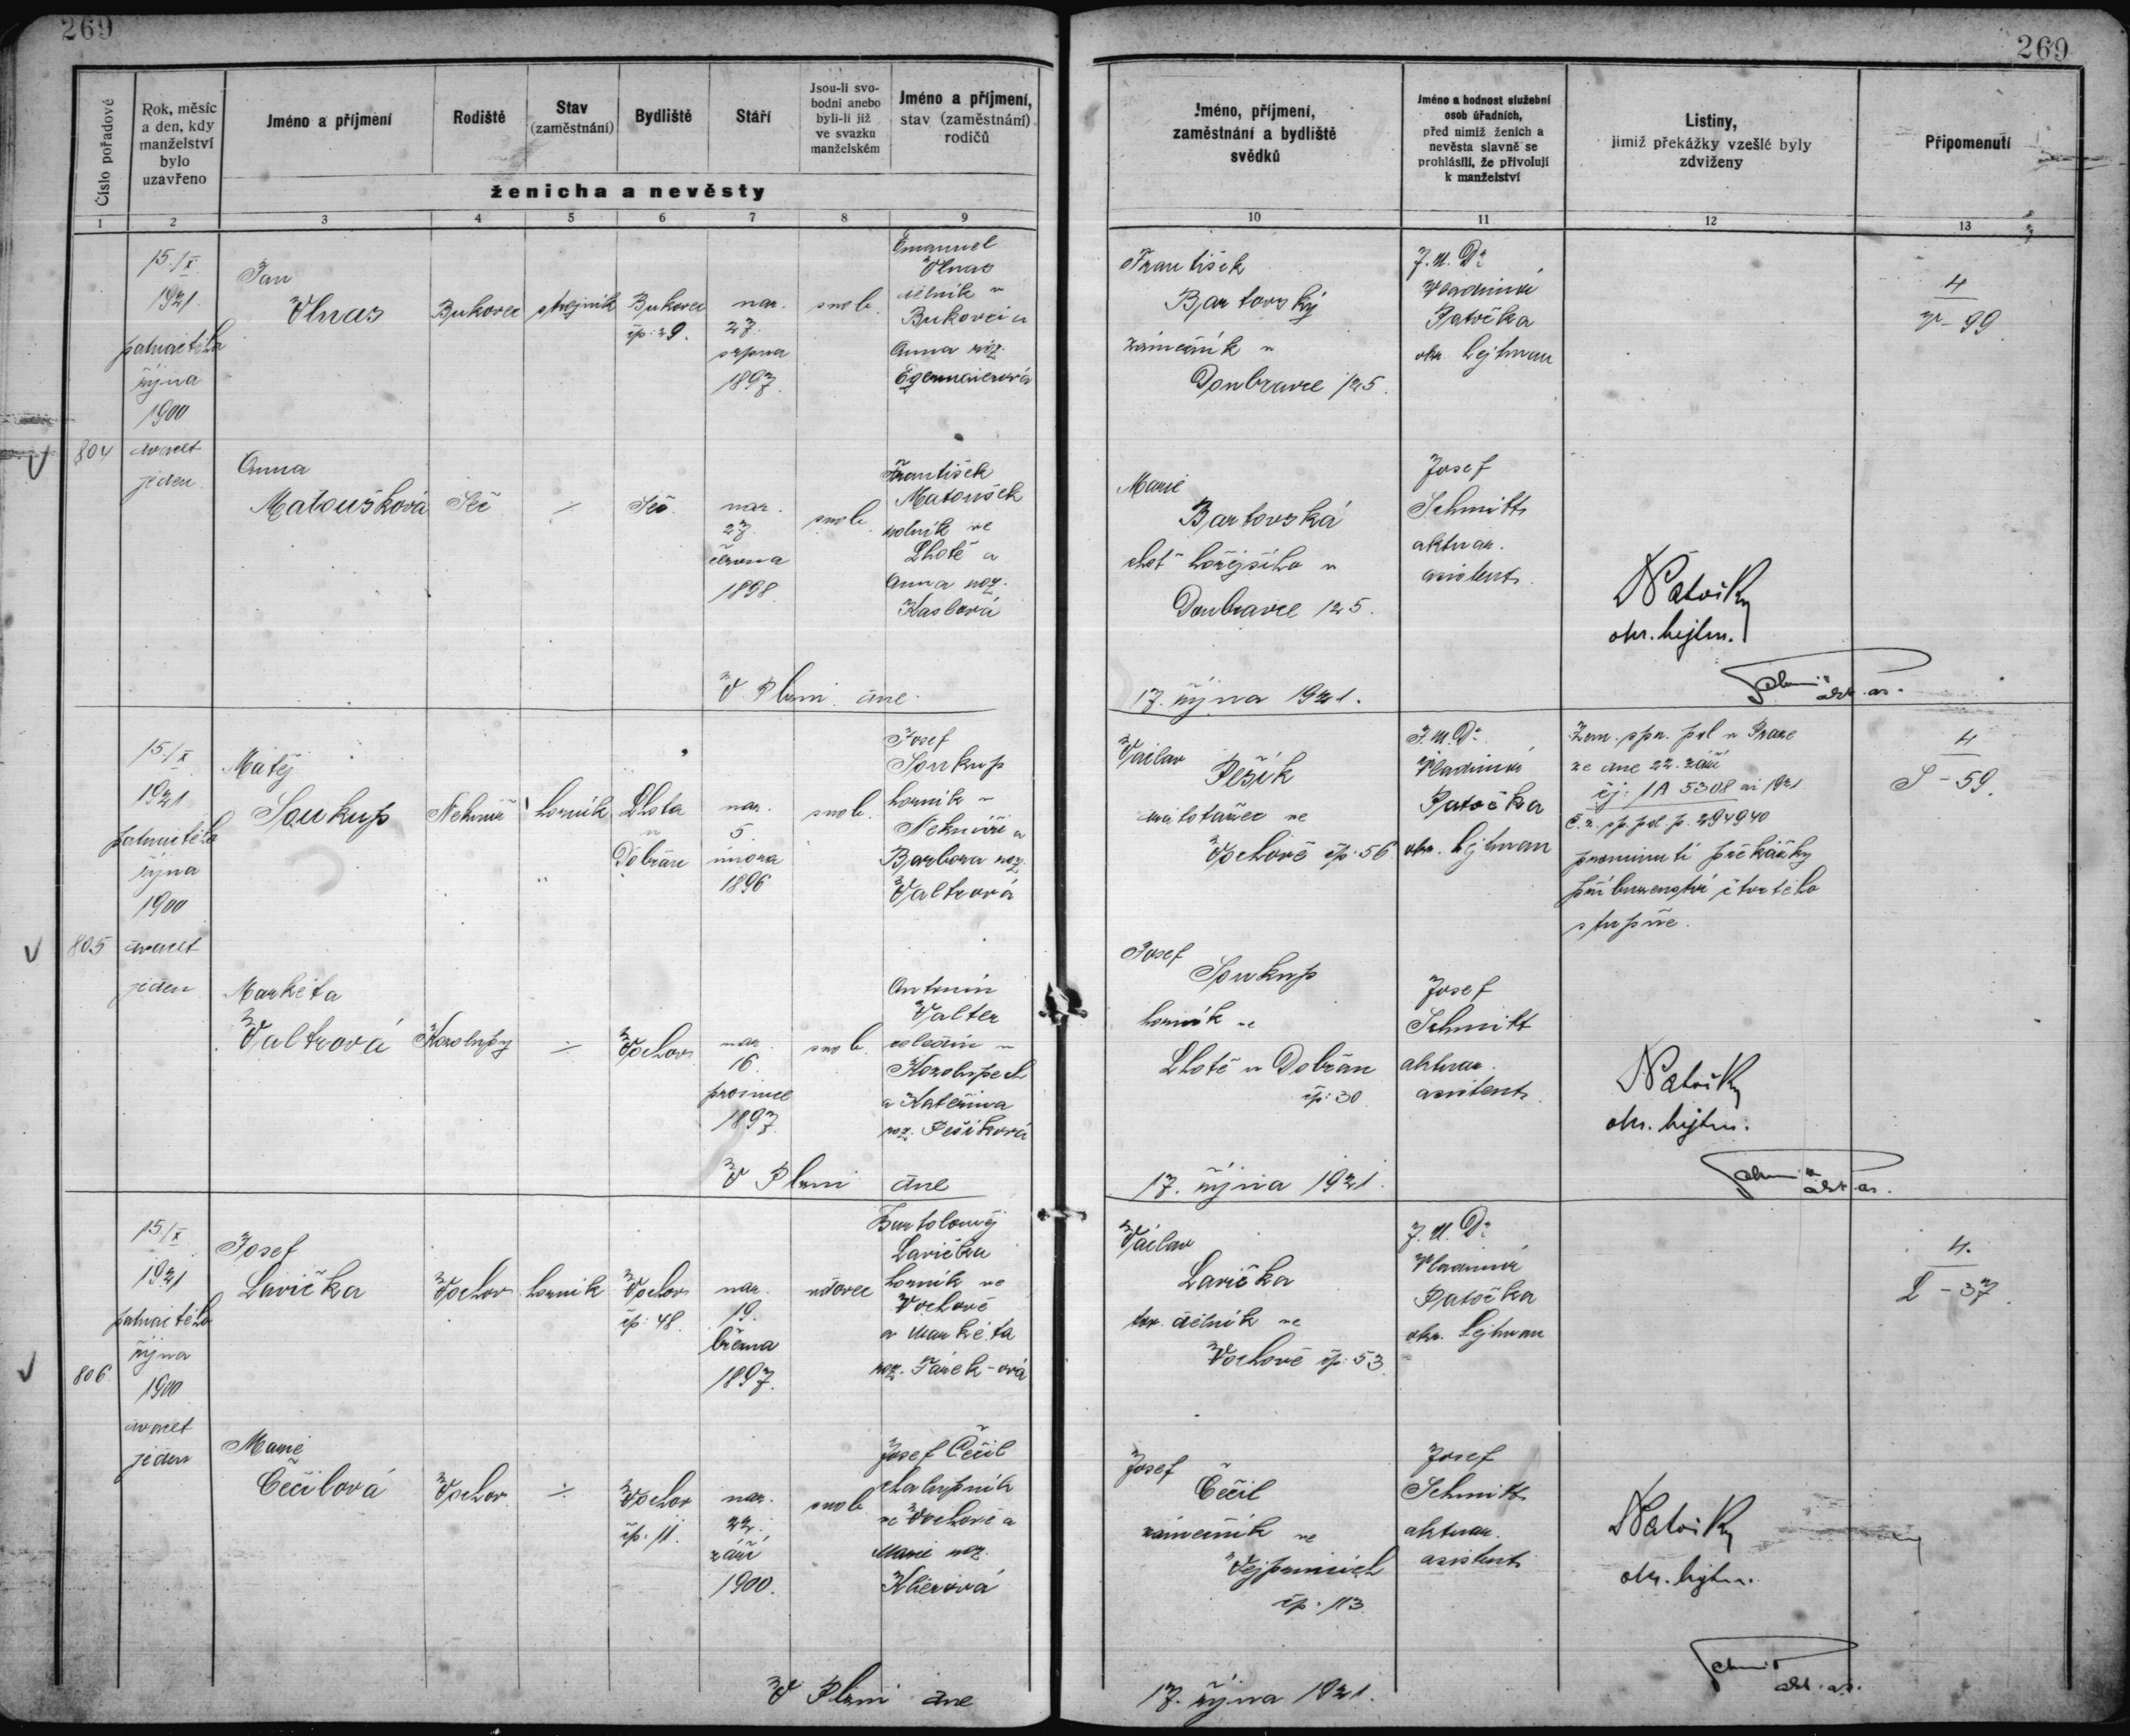 269
269
Číslo pořadové
Rok, měsíc
a den, kdy
manželství
bylo
uzavřeno
Jméno a příjmení
Rodiště
Stav
(zaměstnání)
Bydliště
Stáří
Jsou-li svo-
bodni anebo
byli-li již
ve svazku
manželském
Jméno a příjmení,
stav (zaměstnání)
rodičů
ženicha a nevěsty
Jméno, příjmení,
zaměstnání a bydliště
svědků
Jméno a hodnost služební
osob úřadních,
před nimiž ženich a
nevěsta slavně se
prohlásili, že přivolují
k manželství
Listiny,
jimiž překážky vzešlé byly
zdviženy
Připomenutí
1 2 3 4 5 6 7 8 9 10 11 12 13
804
15./X.
1921.
patnáctého
října
1900
dvacet
jeden
Jan
Vlnas
Bukovec
strojník
Bukovec
čp: 29.
nar.
27.
srpna
1897.
svob.
Emanuel
Vlnas
dělník v
Bukovci a
Anna roz.
František
Bartovský
zámečník v
Doubravce 125.
J. U. Dr
Vladimír
Patočka
okr. hejtman
4
V - 99
Anna
Matoušková
Seč
÷
Seč.
nar.
27.
června
1898.
svob.
František
Matoušek
rolník ve
Lhotě a
Anna roz.
Kaslová
Marie
Bartovská
choť hořejšího v
Doubravce 125.
Josef
Schmitt
aktuar.
asistent
Patočka
okr. hejtm.
Schmitt
akt. as.
V Plzni dne
17. října 1921.
805
15./X
1921
patnáctého
října
1900
dvacet
jeden
Matěj
Soukup
Nekmíř
horník
Lhota
u
Dobřan
nar.
5.
února
1896
svob.
Josef
Soukup
horník v
Nekmíři a
Barbora roz.
Valtrová
Václav
Pešík
maloťařec ve
Vochově čp: 56
J. U. Dr
Vladimír
Patočka
okr. hejtman
Zem. spr. pol v Praze
ze dne 22. září
čj: 1A 5308 ai 1921
č. z. sp. pol. p. 294940
prominutí překážky
příbuzenství čtvrtého
stupně.
4
S - 59.
Markéta
Valtrová
Kozolupy
÷
Vochov
nar.
16.
prosince
1897.
svob.
Antonín
Valter
v
Kozolupech
a Kateřina
roz. Pešíková
Josef
Soukup
horník ve
Lhotě u Dobřan
čp: 30
Josef
Schmitt
aktuar.
asistent
Patočka
okr. hejtm.
Schmitt
akt. as.
V Plzni dne
17. října 1921.
806
15/X
1921
patnáctého
října
1900
dvacet
jeden
Josef
Lavička
Vochov
horník
Vochov
čp: 48.
nar.
19.
března
1897.
vdovec
Bartoloměj
Lavička
horník ve
Vochově
a Markéta
roz. Pánek-ová
Václav
Lavička
tov. dělník ve
Vochově čp: 53.
J. U. Dr
Vladimír
Patočka
okr. hejtman
4.
L - 37.
Marie
Čečilová
Vochov
÷
Vochov
čp. 11.
nar.
22.
září
1900.
svob.
Josef Čečil
chalupník
ve Vochově a
Marie roz.
Khérová
Josef
Čečil
zámečník ve
Vejprnicích
čp. 113.
Josef
Schmitt
aktuar.
asistent
Patočka
okr. hejtm.
Schmitt
akt. as.
V Plzni dne
17. října 1921.